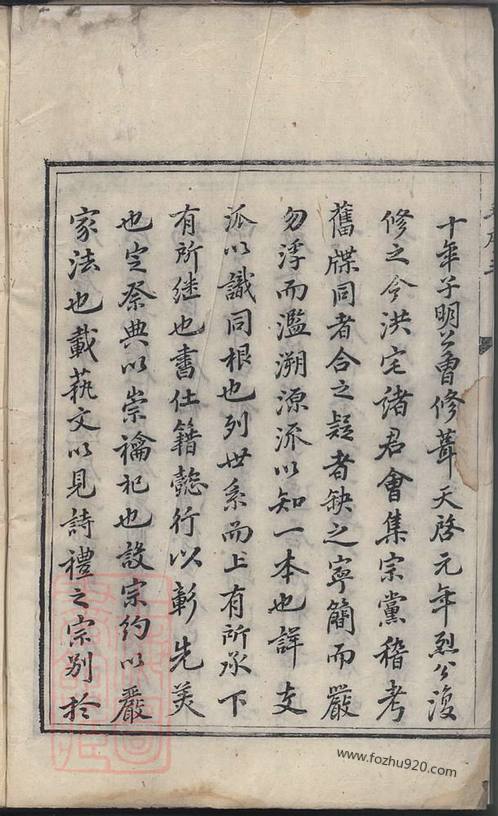 十年子明公曽修葺天啓元年烈公復
修之今洪宅諸君會集宗黨稽考
舊牒同者合之疑者缺之寧簡而嚴
勿浮而濫溯源流以知一本也詳支
派以識同根也列世系而上有所承下
有所继也書仕籍懿行以彰先美
也定祭典以崇禴祀也設宗約以嚴
家法也載蓺文以見詩禮之宗別於
www.fozhu920.com